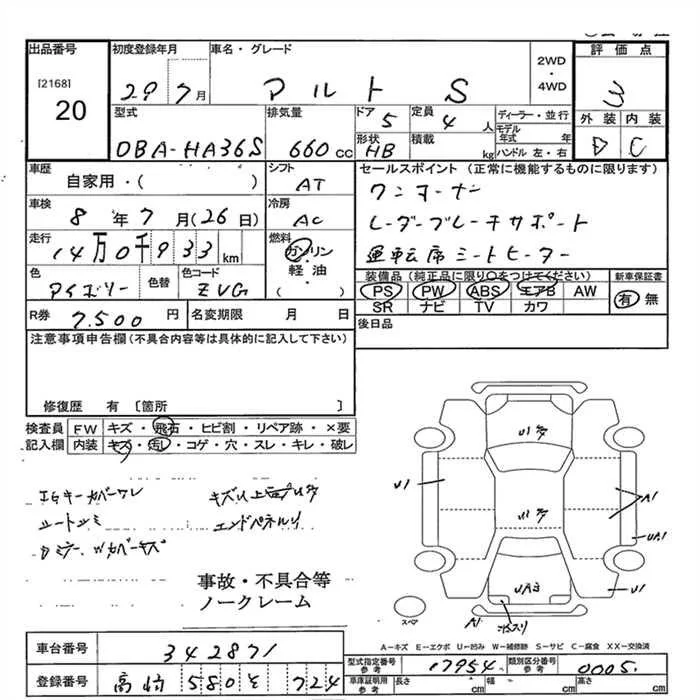 出品番号 初度登録年月 車名・グレード 2WD・4WD 評価点
[2168] 20 29 7月 アルト S 3
型式 排気量 ドア 5 定員 4人 ディーラー・並行 外装 内装
DBA-HA36S 660cc 形状 HB 積載 kg モデル年式 年 ハンドル 左・右 D C
車歴 シフト セールスポイント (正常に機能するものに限ります)
自家用・( ) AT ワンオーナー
車検 冷房
8年7月(26日) AC レーダーブレーキサポート
走行 燃料
14万0千933km ガソリン・軽油 ( ) 運転席シートヒーター
色 色替 色コード 装備品 (純正品に限り○をつけてください) 新車保証書
アイボリー ZVG PS PW ABS エアB AW 有 無
SR ナビ TV カワ
R券 7,500円 名変期限 月 日 後日品
注意事項申告欄(不具合内容等は具体的に記入して下さい)
修復歴 有〔箇所 〕
検査員 FW キズ・飛石・ヒビ割・リペア跡・×要
記入欄 内装 キズ・汚レ・コゲ・穴・スレ・キレ・破レ
シートシミ エンドパネルU
事故・不具合等
ノークレーム
U1 A1 UA1 U1 UA3 A1
スペア
A-キズ E-エクボ U-凹み W-補修跡 S-サビ C-腐食 XX-交換済
車台番号 342871
登録番号 高崎 580 そ 724
型式指定番号 参考 17954 類別区分番号 参考 0005
車庫証明用 参考 長さ cm 幅 cm 高さ cm